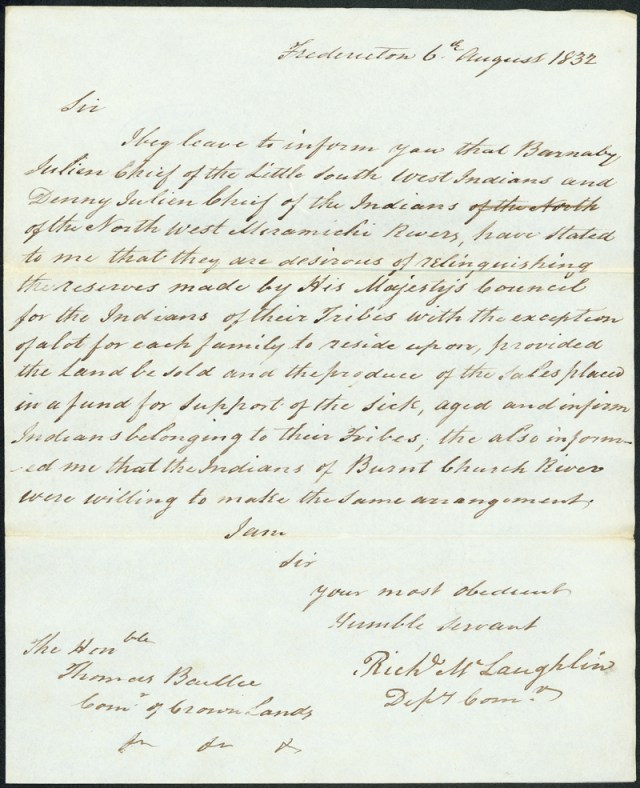 Fredericton 6th August 1832
Sir
I beg leave to inform you that Barnaby
Julien Chief of the Little South West Indians and
Denny Julien Chief of the Indians of the North
of the North West Meramichi Rivers, have stated
to me that they are desirous of relinquishing
the reserves made by His Majesty's Council
for the Indians of their Tribes with the exception
of a lot for each family to reside upon, provided
the Land be sold and the produce of the Sales placed
in a fund for support of the Sick, aged and infirm
Indians belonging to their Tribes, the also inform-
-ed me that the Indians of Burnt Church River
were willing to make the same arrangement,
I am
Sir
your most obedient
Humble Servant
Richd McLaughlin
Depy Comr
The Honble
Thomas Baillie
Comr of Crown Lands